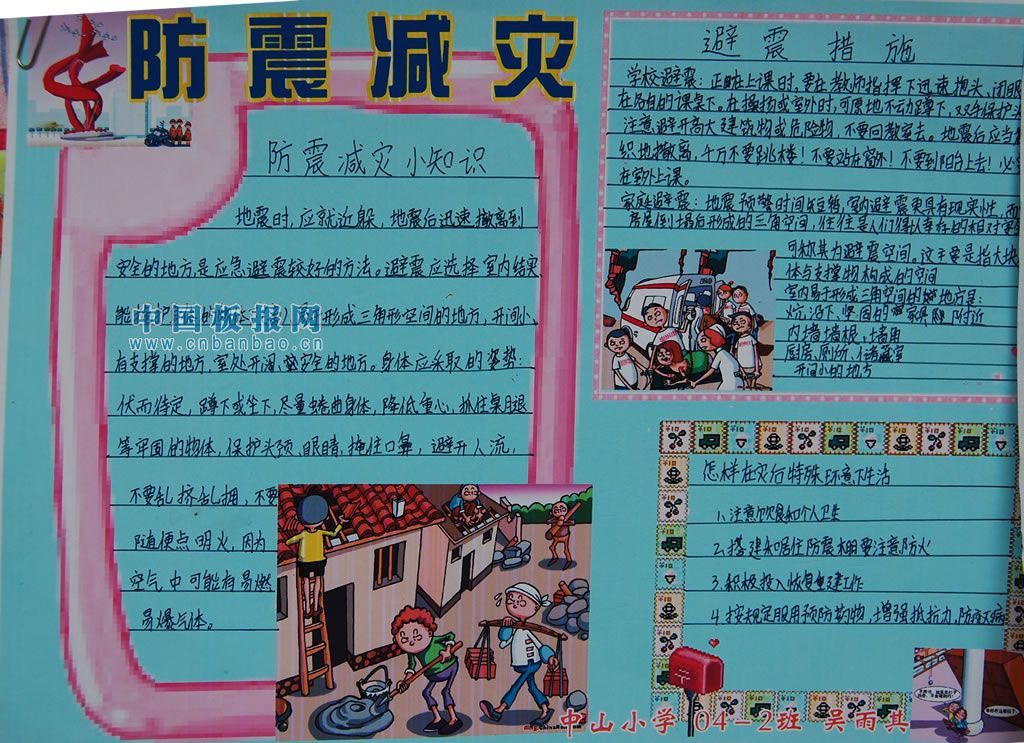 防震减灾
防震减灾小知识
地震时，应就近躲，地震后迅速撤离到
安全的地方，是应急避震较好的方法。避震应选择室内结实
形成三角形空间的地方，开间小、
有支撑的地方，室处开阔、安全的地方。身体应采取的姿势：
伏而待定，蹲下或坐下，尽量蜷曲身体，降低重心，抓住桌腿
等牢固的物体，保护头颈、眼睛，掩住口鼻，避开人流，
不要乱挤乱拥，不要
随便点明火，因为
空气中可能有易燃
易爆气体。
中国板报网
www.cnbanbao.cn
避震措施
学校避震：正在上课时，要在教师指挥下迅速抱头、闭眼
在各自的课桌下。在操场或室外时，可原地不动蹲下，双手保护头
注意避开高大建筑物或危险物，不要回教室去。地震后应当
织地撤离，千万不要跳楼！不要站在窗外！不要到阳台上去！必
在室外上课。
家庭避震：地震预警时间短暂，室内避震更具有现实性，而
房屋倒塌后形成的三角空间，往往是人们得以幸存的相对
可称其为避震空间。这主要是指大块
体与支撑物构成的空间
室内易于形成三角空间的地方是：
炕沿下、坚固的家具附近
内墙墙根、墙角
厨房、厕所、储藏室
开间小的地方
怎样在灾后特殊环境下生活
1.注意饮食和个人卫生
2.搭建和居住防震棚要注意防火
3.积极投入恢复重建工作
4.按规定服用预防药物，增强抵抗力，防疫灭病
中山小学 04-2班 吴雨其